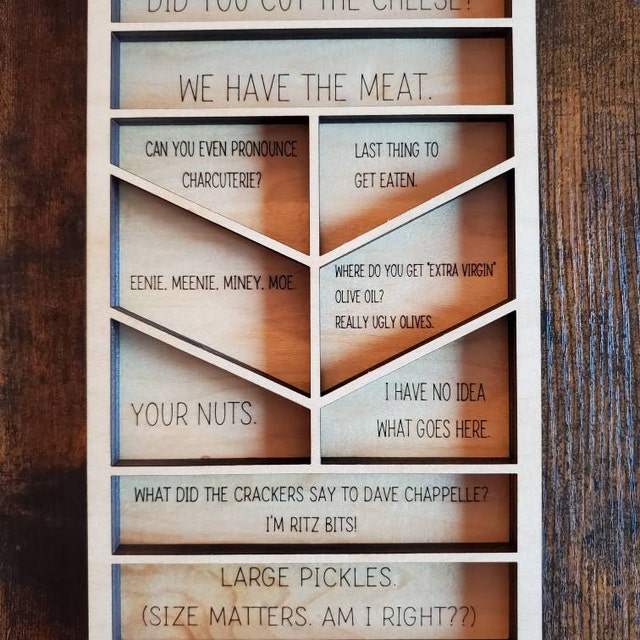 DID YOU CUT THE CHEESE?
WE HAVE THE MEAT.
CAN YOU EVEN PRONOUNCE
CHARCUTERIE?
LAST THING TO
GET EATEN.
EENIE. MEENIE. MINEY. MOE.
WHERE DO YOU GET "EXTRA VIRGIN"
OLIVE OIL?
REALLY UGLY OLIVES.
YOUR NUTS.
I HAVE NO IDEA
WHAT GOES HERE.
WHAT DID THE CRACKERS SAY TO DAVE CHAPPELLE?
I'M RITZ BITS!
LARGE PICKLES.
(SIZE MATTERS. AM I RIGHT??)